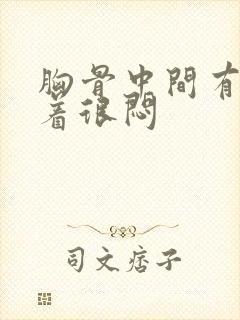 胸骨中間有
著很悶
司文痞子